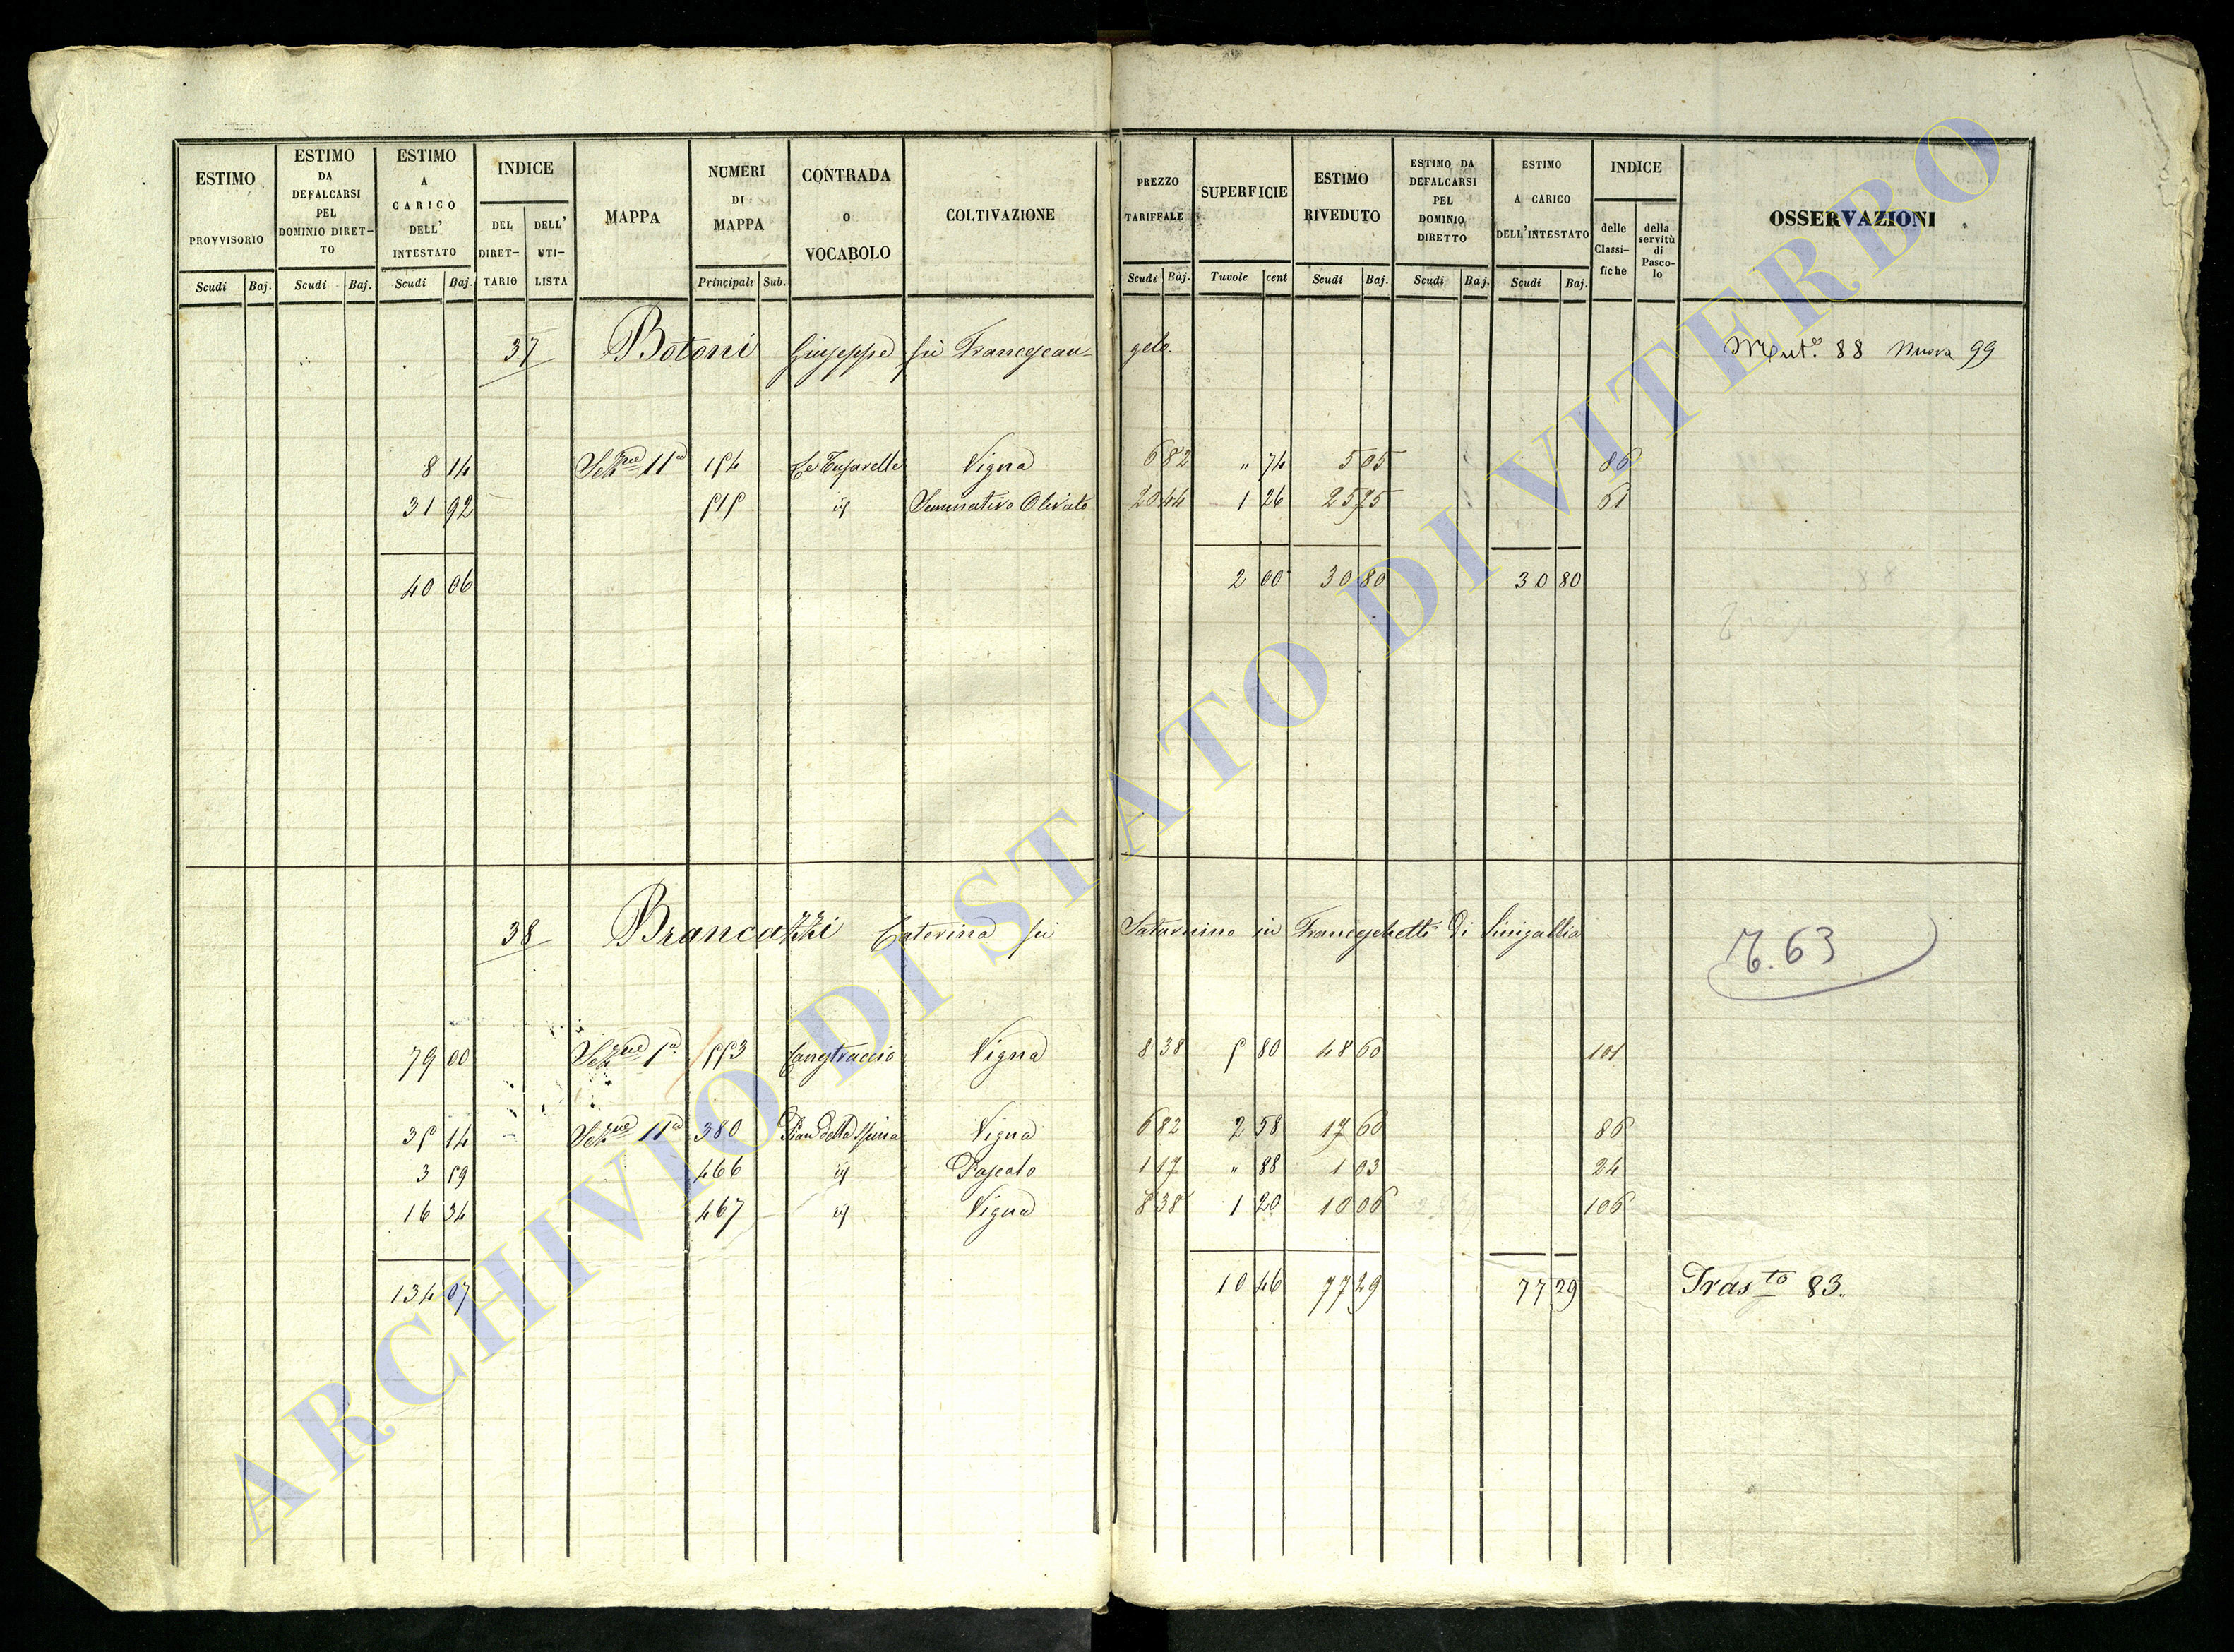 ESTIMO PROVVISORIO Scudi Baj.
ESTIMO DA DEFALCARSI PEL DOMINIO DIRET- TO Scudi Baj.
ESTIMO A CARICO DELL' INTESTATO Scudi Baj.
INDICE DEL DIRET- TARIO DELL' UTI- LISTA
MAPPA
NUMERI DI MAPPA Principali Sub.
CONTRADA O VOCABOLO
COLTIVAZIONE
PREZZO TARIFFALE Scudi Baj.
SUPERFICIE Tavole cent
ESTIMO RIVEDUTO Scudi Baj.
ESTIMO DA DEFALCARSI PEL DOMINIO DIRETTO Scudi Baj.
ESTIMO A CARICO DELL'INTESTATO Scudi Baj.
INDICE delle Classi- fiche della servitù di Pasco- lo
OSSERVAZIONI
37 Botoni Giuseppe fù Francescan- gelo. Mut.e 88 Nuova 99
8 14 Sez.ne 11a 154 Le Tufarelle Vigna 6 82 " 74 5 05 86
31 92 515 id Seminativo Olivato 20 44 1 26 25 75 61
40 06 2 00 30 80 30 80
38 Brancazzi Caterina fù Saturnino in Franceschetti di Sinigallia
T. 63
79 00 Sez.ne 5a 553 Vigna 8 38 5 80 48 60 101
35 14 Sez.ne 11a 380 Pian della Spina Vigna 6 82 2 58 17 60 86
3 59 466 id Pascolo 1 17 " 88 1 03 24
16 34 467 id Vigna 8 38 1 20 10 06 106
134 07 10 46 77 29 77 29 Tras.to 83.
ARCHIVIO DI STATO DI VITERBO